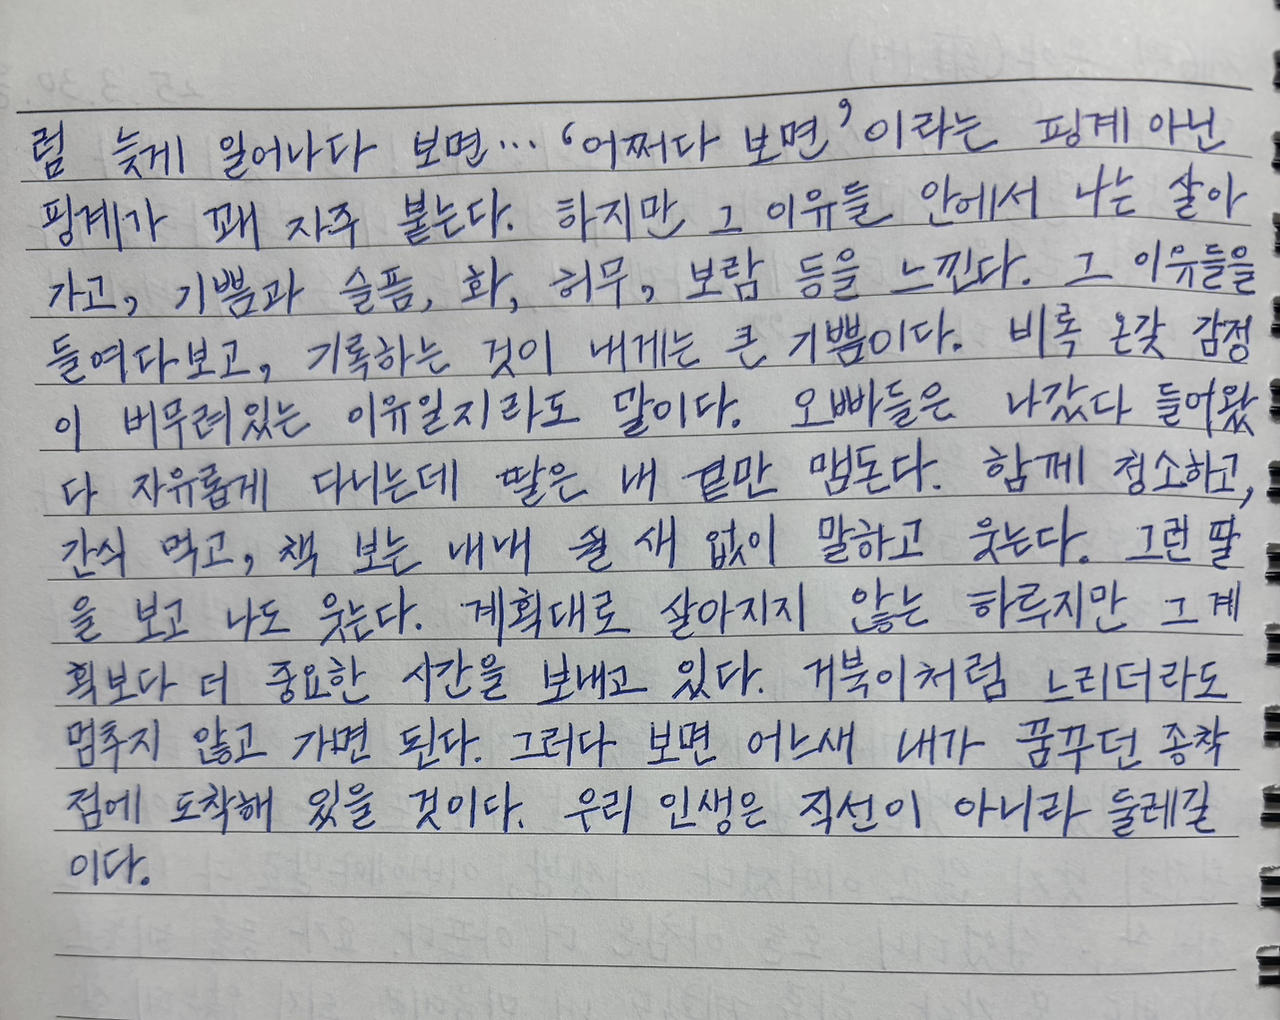 럼 늦게 일어나다 보면... '어쩌다 보면'이라는 핑계 아닌
핑계가 꽤 자주 붙는다. 하지만 그 이유들 안에서 나는 살아
가고, 기쁨과 슬픔, 화, 허무, 보람 등을 느낀다. 그 이유들을
들여다보고, 기록하는 것이 내게는 큰 기쁨이다. 비록 온갖 감정
이 버무려있는 이유일지라도 말이다. 오빠들은 나갔다 들어왔
다 자유롭게 다니는데 딸은 내 곁만 맴돈다. 함께 청소하고,
간식 먹고, 책 보는 내내 쉴 새 없이 말하고 웃는다. 그런 딸
을 보고 나도 웃는다. 계획대로 살아지지 않는 하루지만 그 계
획보다 더 중요한 시간을 보내고 있다. 거북이처럼 느리더라도
멈추지 않고 가면 된다. 그러다 보면 어느새 내가 꿈꾸던 종착
점에 도착해 있을 것이다. 우리 인생은 직선이 아니라 둘레길
이다.